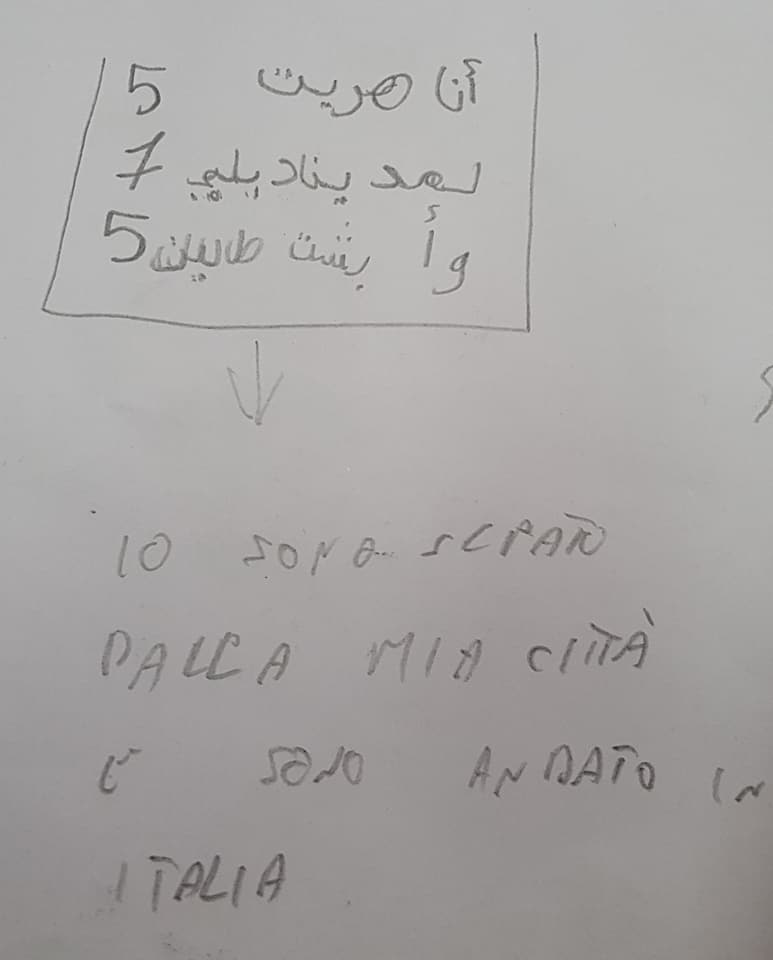 أنا هريت 5
لعد يناد يلي 7
وأ بشت طاليان 5
IO SONO SCPATO
DALLA MIA CITTÀ
E SONO ANDATO IN
ITALIA